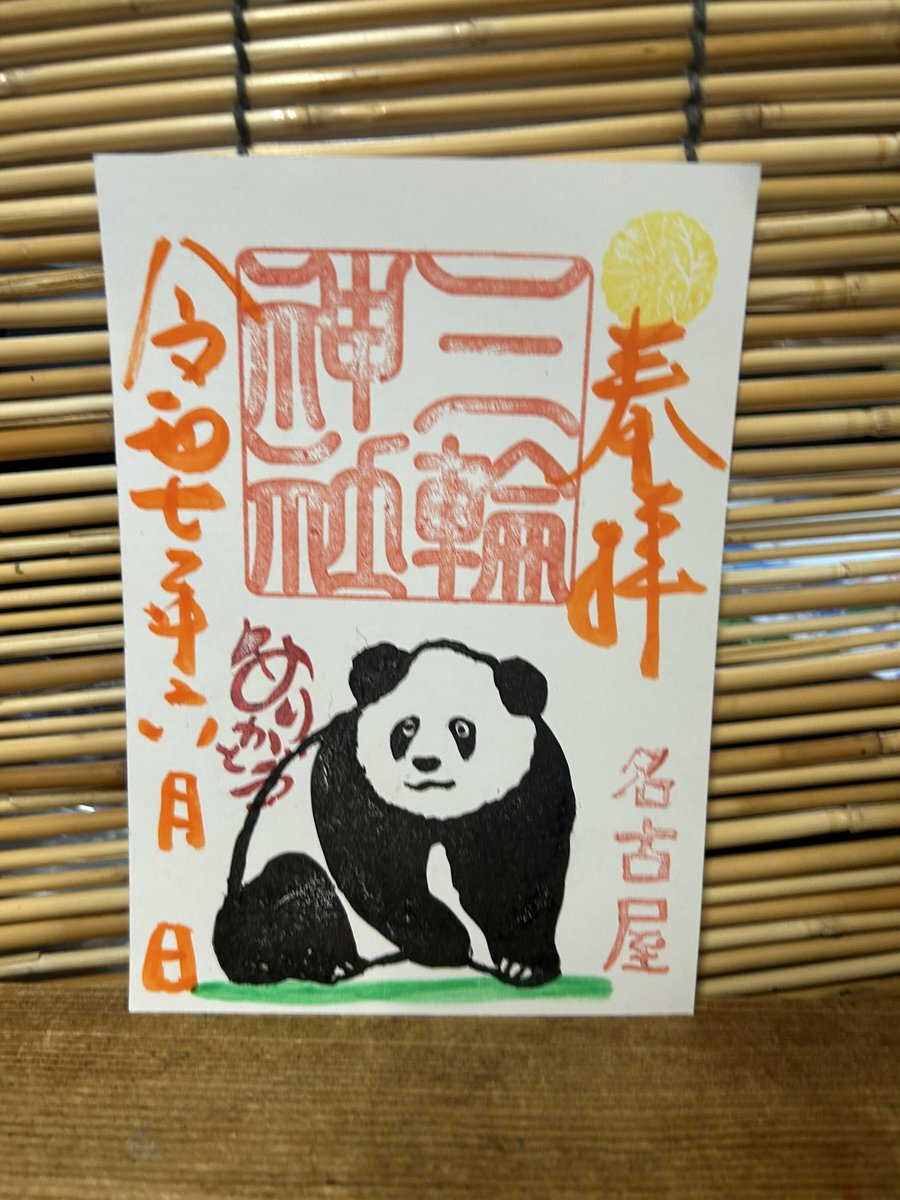 奉拝
名古屋
三輪
神社
ありがとう
令和七年六月 日